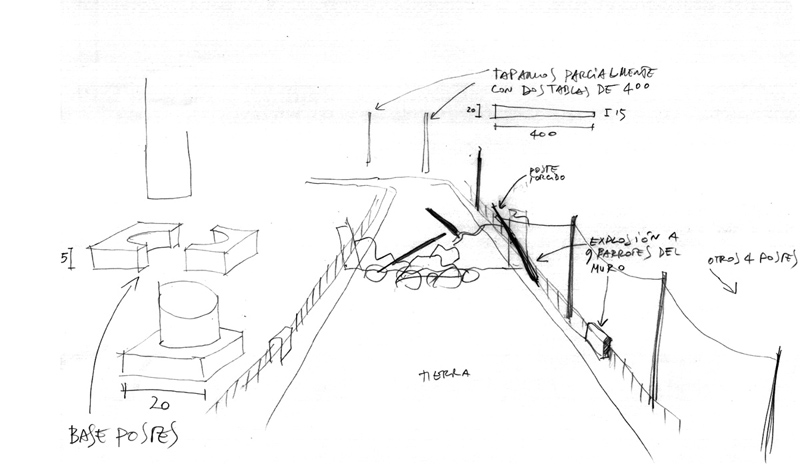 TAPAMOS PARCIALMENTE
CON DOS TABLAS DE 400
20
15
400
POSTE
TORCIDO
EXPLOSIÓN A
9 BARROTES DEL
MURO
OTROS 4 POSTES
5
TIERRA
20
BASE POSTES